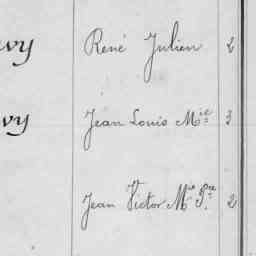 vy René Julien 2
vy Jean Louis Mie 3
Jean Victor Mie Pre 2